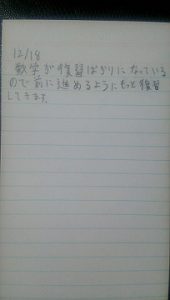 12/18
数学が復習ばかりになっている
ので前に進めるようにもっと復習
してきます。